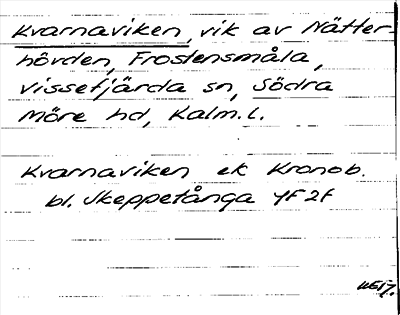 Kvarnaviken, vik av Nätter-
hövden, Frostensmåla,
Vissefjärda sn, Södra
Möre hd, Kalm. l.
Kvarnaviken ek Kronob.
bl. Skeppetånga 4F2f